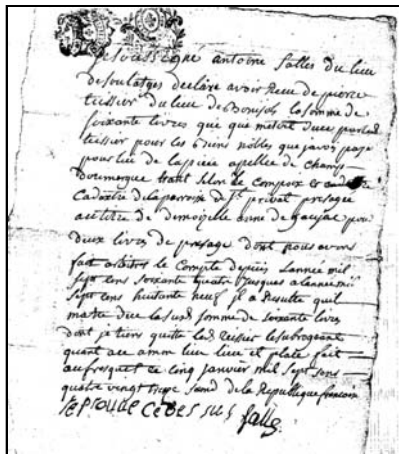 je soussigne antoine salles du lieu
de soulatges declare avoir Receu de pierre
teissier du lieu de la somme de
soixante livres que que
teissier pour les biens nobles que javoy paye
pour lui de la piece apellee de champ
selon le compoix et
cadastre de la parroisse de st privat presage
au titre de demoizelle anne de gaujac pour
deux livres de presage dont nous avons
fait arreter le compte depuis l'annee mil
sept cens soixante quatre jusques a l'annee mil
sept cens huitante neuf il a Resulte quil
ma este due la susd somme de soixante livres
dont je tiens quitte led teissier le subrogeant
quant a ce a mon lieu et place fait
au fresquet ce cinq janvier mil sept sens
quatre vingt de la Republique francoise
sus salles